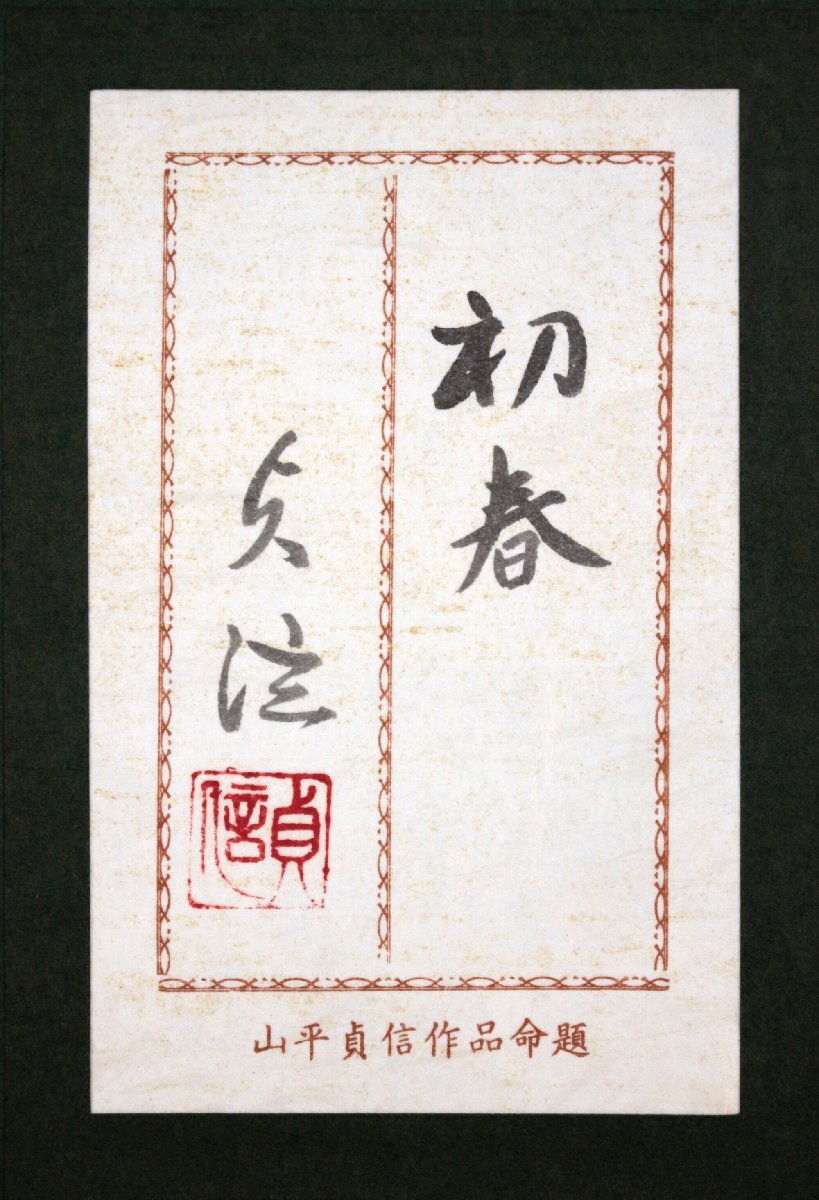 初春
貞信
貞信
山平貞信作品命題